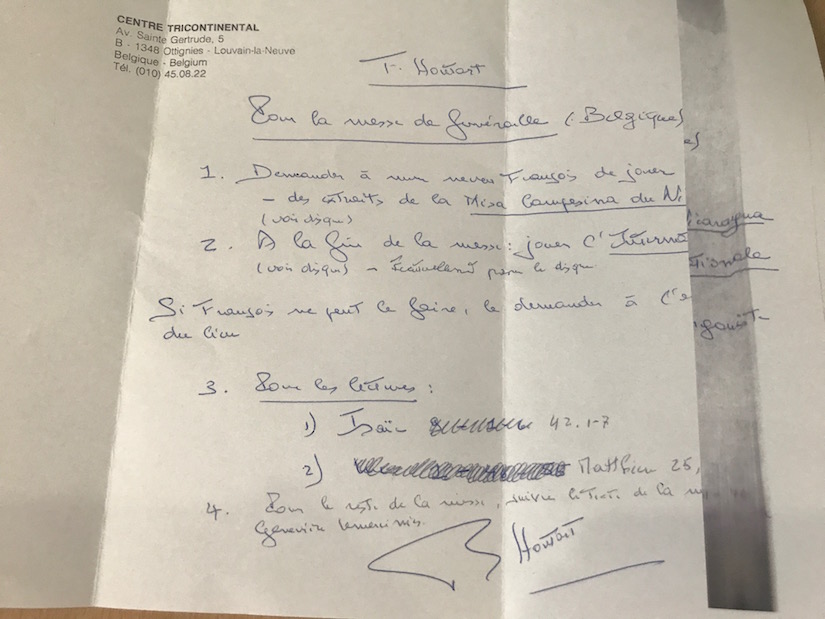 CENTRE TRICONTINENTAL
Av. Sainte Gertrude, 5
B - 1348 Ottignies - Louvain-la-Neuve
Belgique - Belgium
Tél. (010) 45.08.22
F. Houtart
Pour la messe de funéraille (Belgique)
1. Demander à mon neveu François de jouer
- des extraits de la Misa Campesina du Nicaragua
(voir disque)
2. A la fin de la messe : jouer l'Internationale
(voir disque) - passer le disque
Si François ne peut le faire, le demander à l'organiste
du lieu
3. Pour les lectures :
1) Isaïe 42.1-7
2) Matthieu 25,
4. Pour le reste de la messe, suivre le texte de la messe de
Geneviève Lemercinier.
Houtart